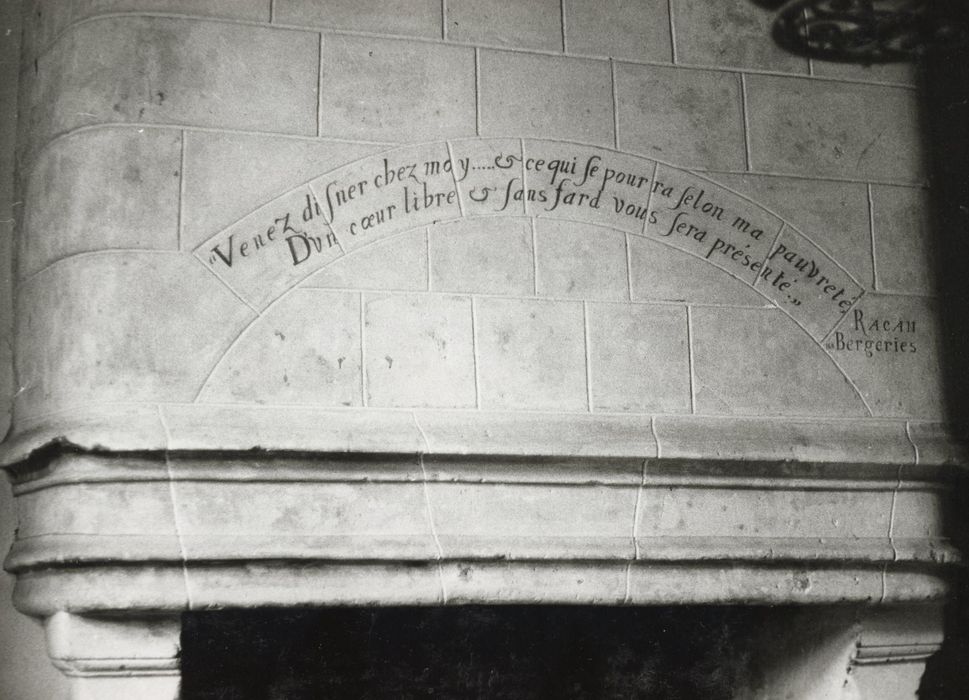 "Venez diſner chez moy.....& ce qui ſe pourra ſelon ma pauvreté
D'vn cœur libre & ſans fard vous ſera présenté."
RACAN
Bergeries